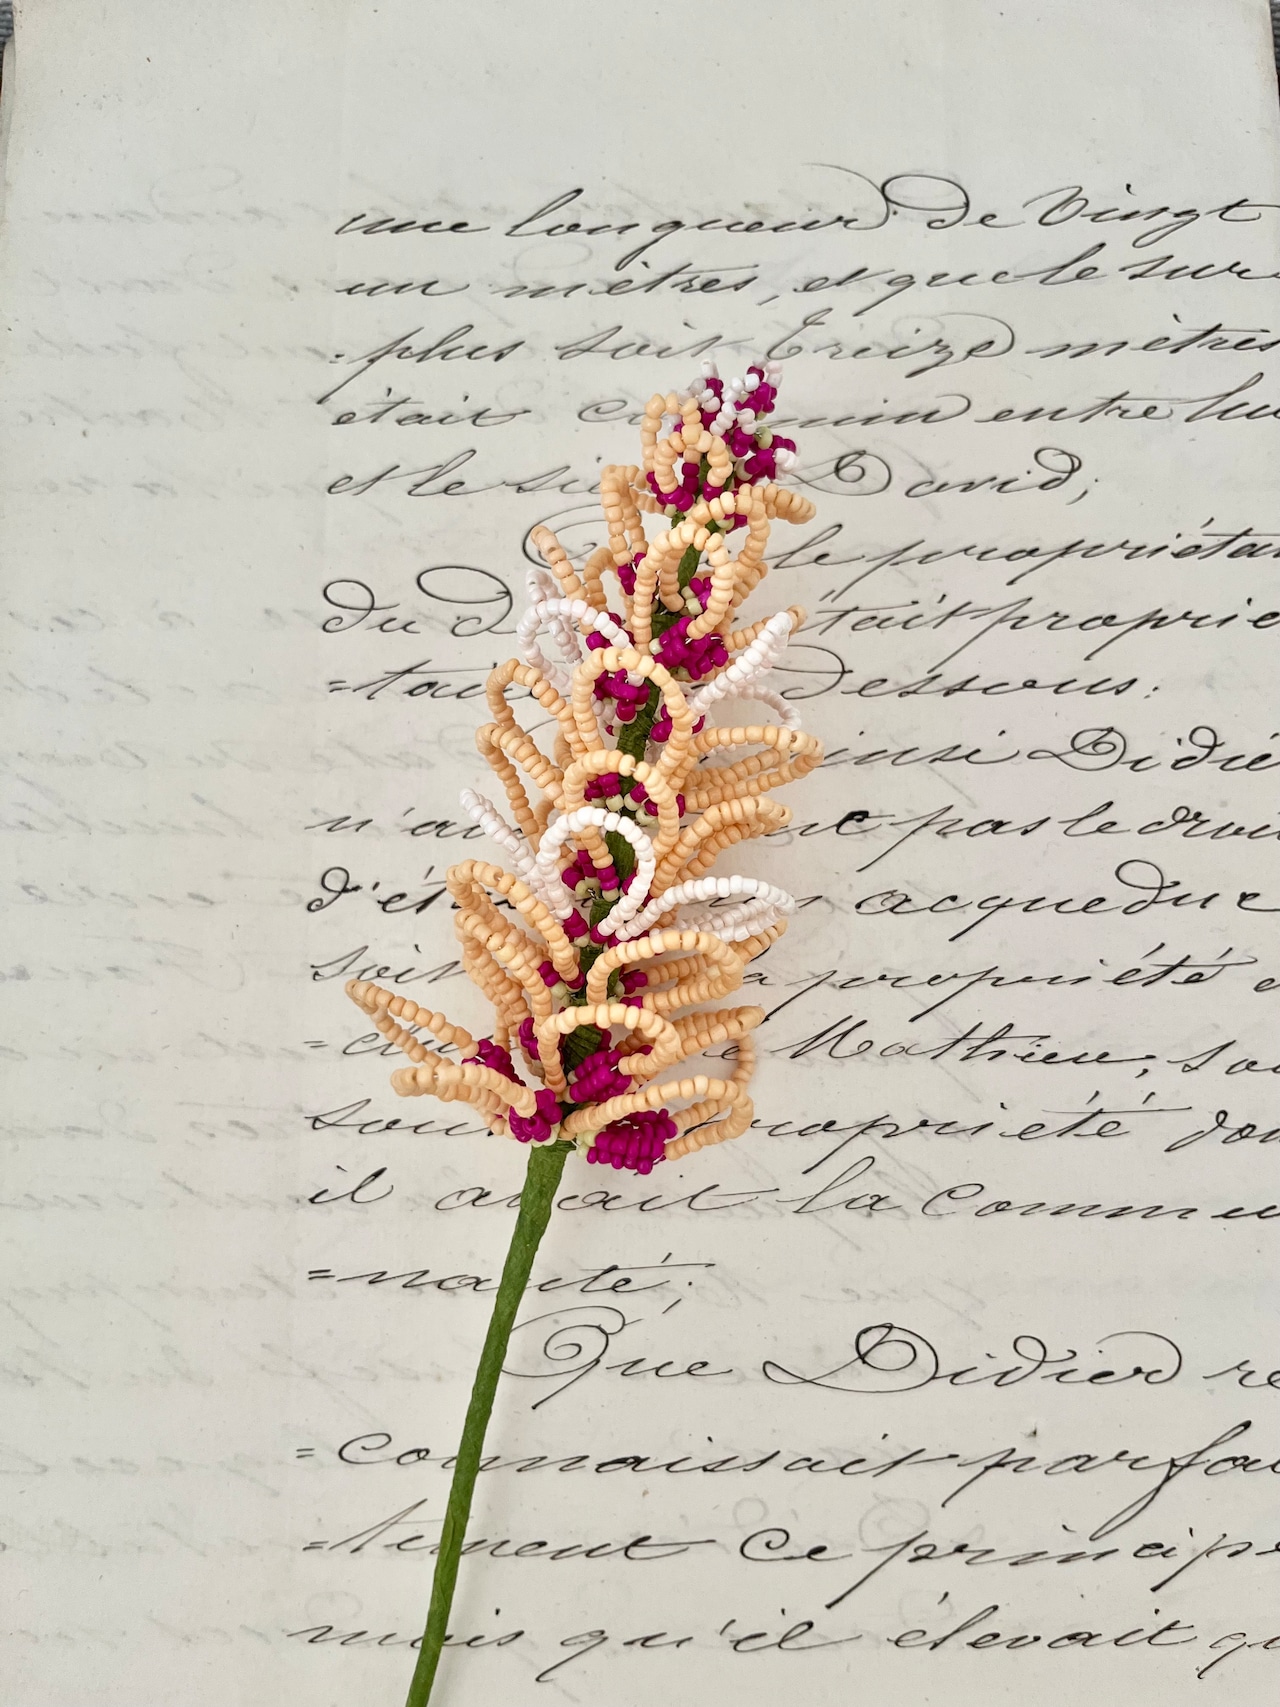 une longueur de Vingt
un mètres, et que le sur
=plus soit Treize mètres
était entre lui
et le David;
le propriétai
du était proprié
=tai Dessous:
insi Didie
n'a pas le droit
d' acqueduc
soit la propriété
= Mathieu, so
sou propriété don
il avait la commu
=nauté;
Que Didier re
=connaissait parfai
=tement ce principe
mais qu'il élevait qu